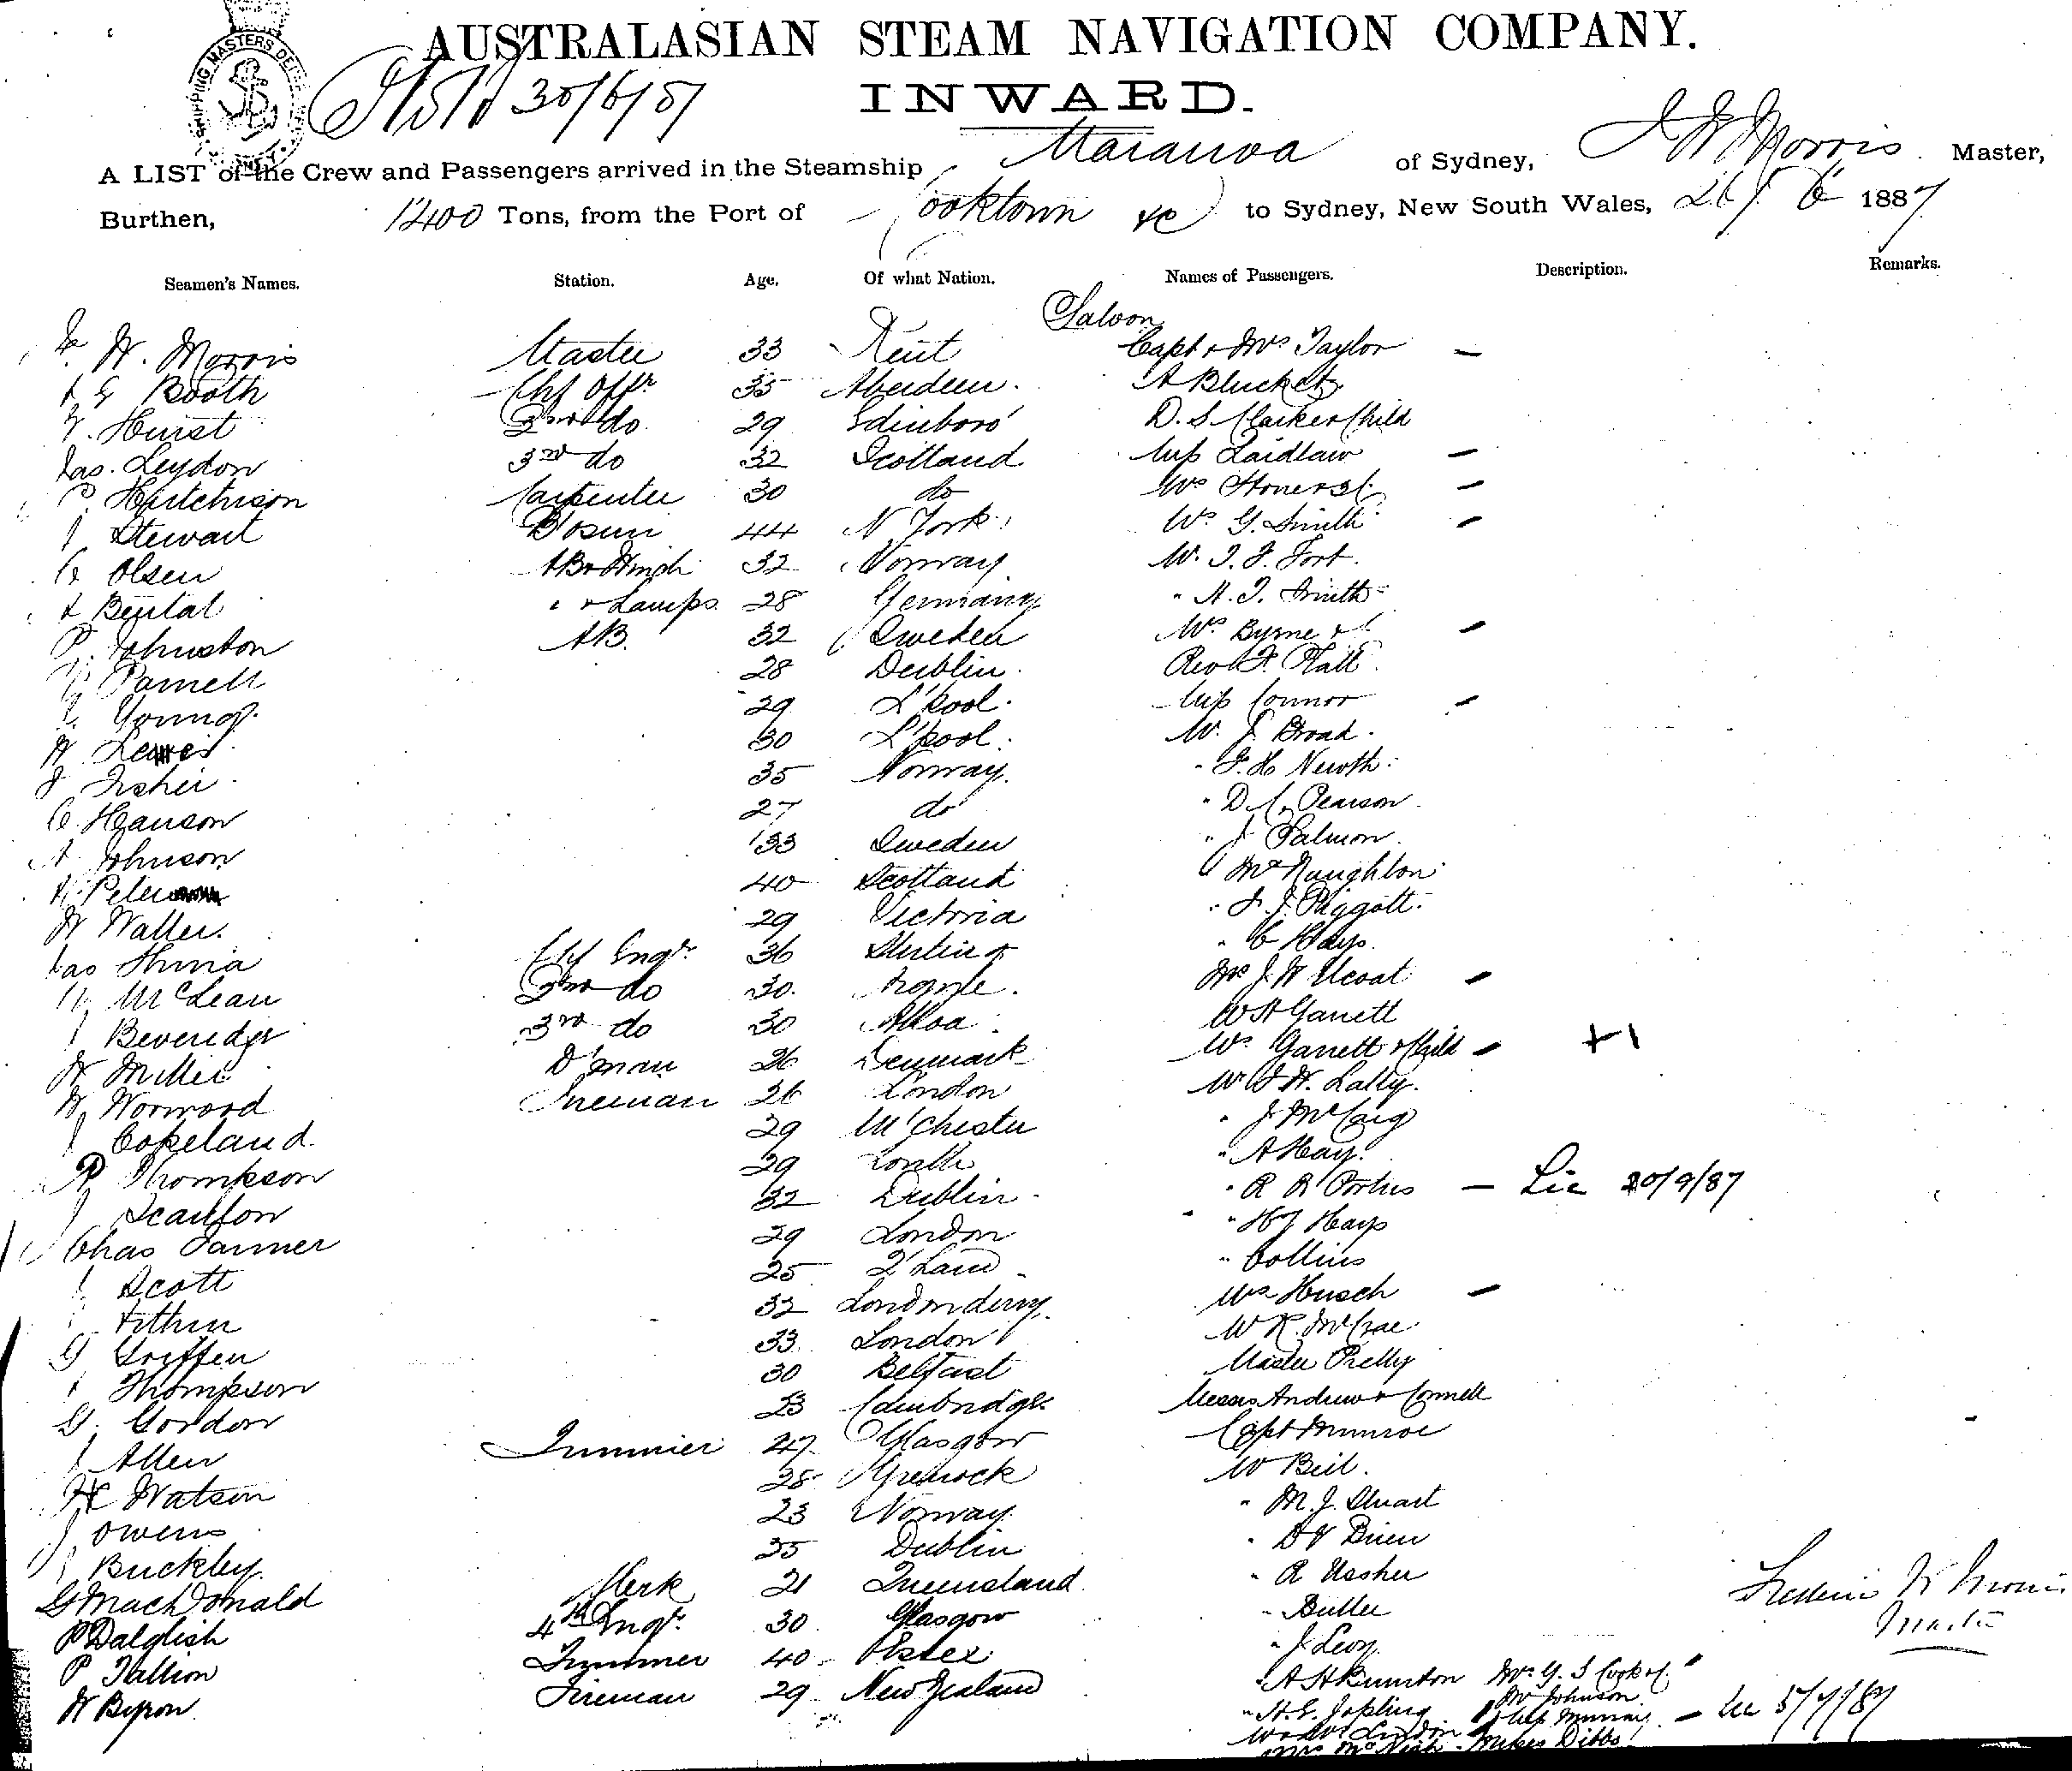 AUSTRALASIAN STEAM NAVIGATION COMPANY.
INWARD.
SHIPPING MASTERS
30/6/87
A LIST of the Crew and Passengers arrived in the Steamship Maranoa of Sydney, Morris Master,
Burthen, 1400 Tons, from the Port of Cooktown &c to Sydney, New South Wales, 26/6 1887
Seamen's Names. Station. Age. Of what Nation. Names of Passengers. Description. Remarks.
Saloon
W. Morris Master 33 Kent Capt & Mrs Taylor —
Booth Chf Offr 35 Aberdeen. A
Hurst 2nd do 29 Edinboro' D. S Clarke & Child
Jas. Leydon 3rd do 32 Scotland Miss Laidlaw —
Hutchison Carpenter 30 do Mrs —
J Stewart B'osun 44 N York Mrs G. Smith —
Olsen AB & 32 Norway W. T. F. Fort.
Bental " & Lamps 28 Germany " Smith
P. Johnston AB. 32 Sweden Mrs Byrne —
Parnell 28 Dublin. Rev F. Platt
Young 29 L'pool. Miss Connor —
W 30 L'pool. J Broad.
J Fisher 35 Norway. " F. H Newth
C. Hanson 27 do " D. C. Pearson
A Johnson 33 Sweden " J Salmon
40 Scotland McNaughton
W Waller. 29 Victoria " F. J. Piggott.
Jas Chf Engr. 36 " C Hays.
McLean 2nd do 30. Mrs J. W Ucoat —
J Beveridge 3rd do 30 Alloa. W H Garrett
W Miller D'man 26 Denmark Mrs Garrett & Child — +1
W Norwood Fireman 26 London Lally.
J Copeland. 29 M'Chester " J McCaig
R Thompson 29 Louth " A Hay.
J Scanlon 32 Dublin. " R R Portus — Lic 20/9/87
Chas Farmer 29 London " H J Hays
J Scott 25 Q'Land " Collins
32 Londonderry. Mrs Husch —
G Griffen 33 London McCrae
J Thompson 30 Belfast Master Pretty
G. Gordon 23 Cambridge Messrs Andrew & Connell
J Allen Trimmer 27 Glasgow Capt Munroe
H Watson 28 Greenock
J Owens 23 Norway " M. J. Stuart
J Buckley. 35 Dublin
G MacDonald Clerk 21 Queensland. " R Ussher
P Dalglish 4th Engr. 30 Glasgow " Butler
P Tallion Trimmer 40 Essex " J Levy
W Byron. Fireman 29 New Zealand
" H. E. Jopling Mr Johnson
Miss Murray — Lic 5/7/87
Dibbs
Frederic W Morris
Master